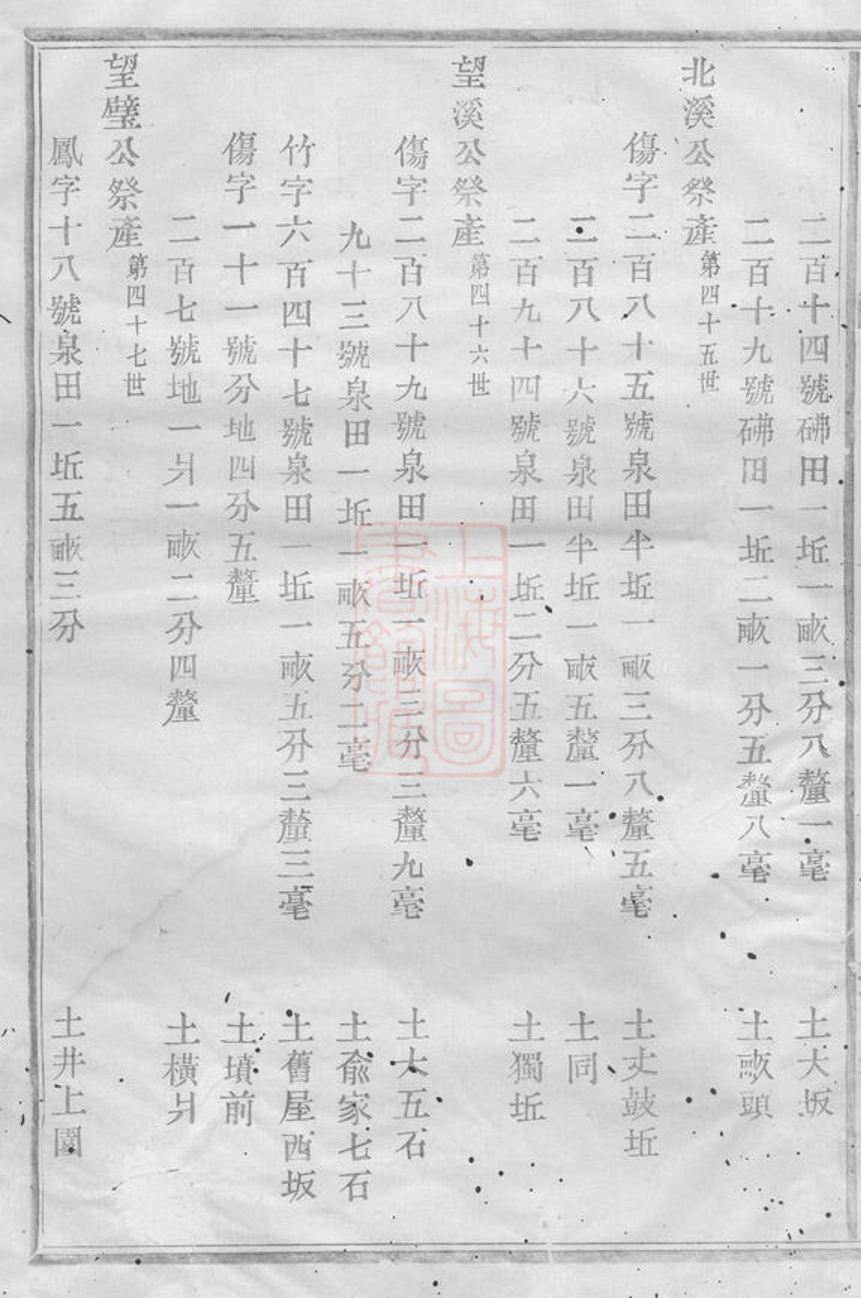 二百十四號砩田一坵一畝三分八釐一毫　土大坂
二百十九號砩田一坵二畝一分五釐八毫　土畝頭
北溪公祭產第四十五世
傷字二百八十五號泉田半坵一畝三分八釐五毫　土丈鼓坵
二百八十六號泉田半坵一畝五釐一毫　土同
二百九十四號泉田一坵二分五釐六毫　土獨坵
望溪公祭產第四十六世
傷字二百八十九號泉田一坵一畝三分三釐九毫　土大五石
九十三號泉田一坵一畝五分二毫　土俞家七石
竹字六百四十七號泉田一坵一畝五分三釐三毫　土舊屋西坂
傷字一十一號分地四分五釐　土墳前
二百七號地一爿一畝二分四釐　土橫爿
望璧公祭產第四十七世
鳳字十八號泉田一坵五畝三分　土井上園
上海圖書館藏